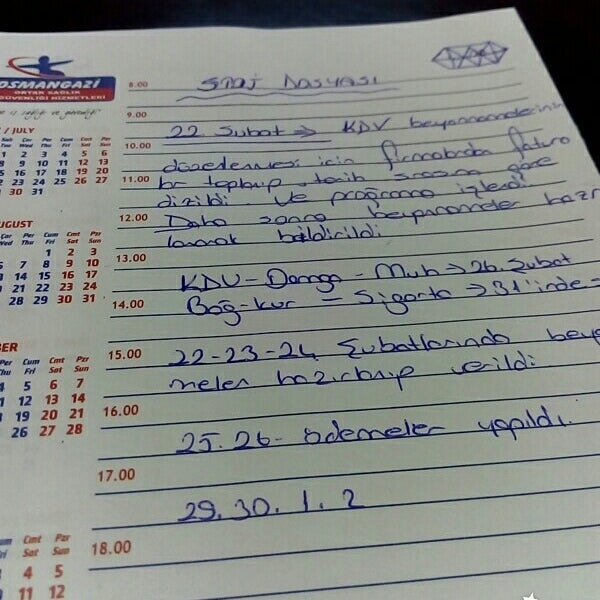 OSMANGAZİ
ORTAK SAĞLIK
GÜVENLİĞİ HİZMETLERİ
STAJ DOSYASI
22 Şubat => KDV beyannamelerinin
düzenlenmesi için firmalarda fatura
lar toplanıp tarih sırasına göre
dizildi ve programa işlendi
Daha sonra beyannameler hazır
lanarak bildirildi
KDV - Damga - Muh -> 26. Şubat
Bağ-kur - Sigorta -> 31'inde
22-23-24 Şubatlarında beya
meler hazırlanıp verildi.
25. 26 - ödemeler yapıldı.
29. 30. 1. 2
8.00
9.00
10.00
11.00
12.00
13.00
14.00
15.00
16.00
17.00
18.00
/ JULY
Sal Çar Per Cum Cmt Pzr
Tue Wed Thu Fri Sat Sun
1 2 3 4 5 6
8 9 10 11 12 13
15 16 17 18 19 20
22 23 24 25 26 27
29 30 31
UGUST
Çar Per Cum Cmt Pzr
Wed Thu Fri Sat Sun
1 2 3
6 7 8 9 10
13 14 15 16 17
20 21 22 23 24
27 28 29 30 31
BER
Per Cum Cmt Pzr
Thu Fri Sat Sun
4 5 6 7
11 12 13 14
18 19 20 21
25 26 27 28
Cum Cmt Pzr
Fri Sat Sun
4 5
11 12